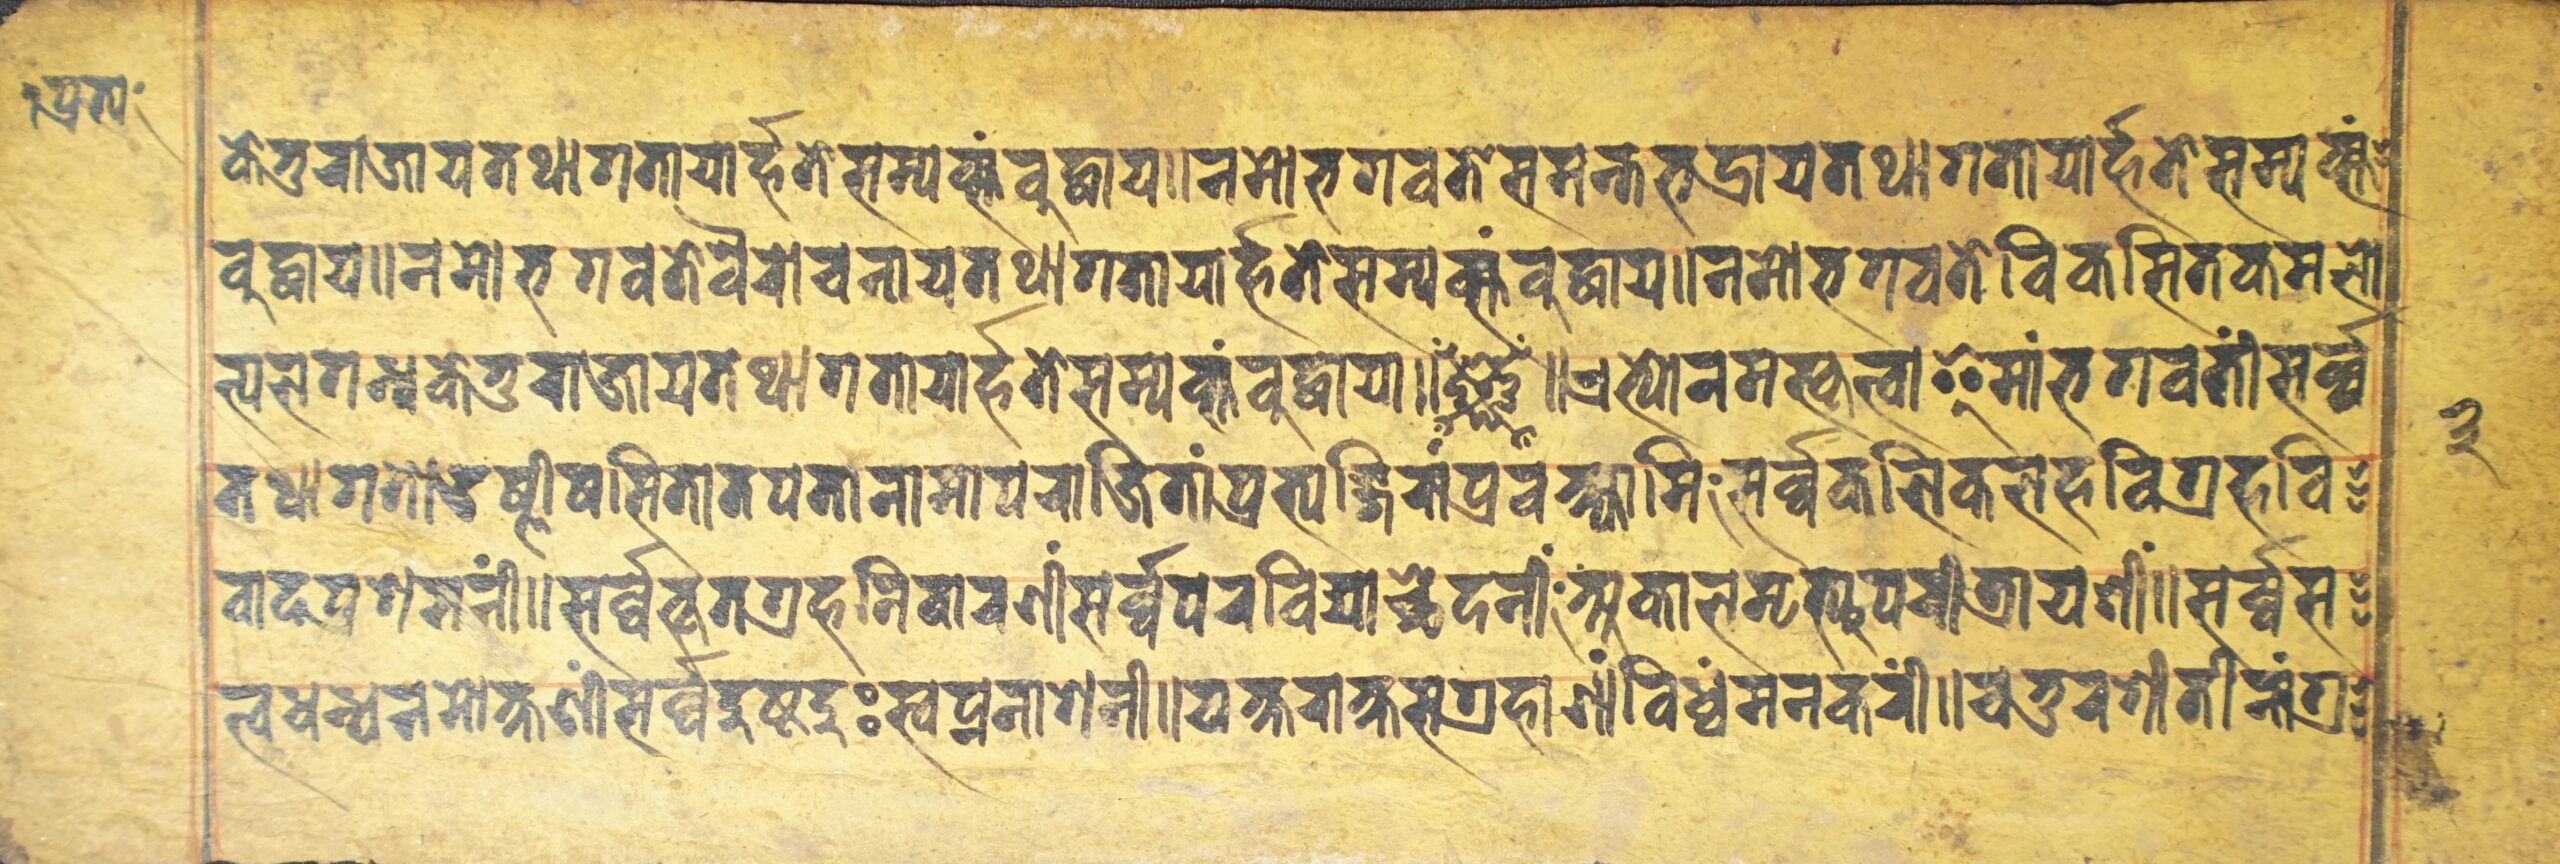 प्रत्यं
केतुराजाय तथागतायार्हते सम्यक्संबुद्धाय॥ नमो भगवते समन्तभद्राय तथागतायार्हते सम्यक्सं
बुद्धाय॥ नमो भगवते वैरोचनाय तथागतायार्हते सम्यक्संबुद्धाय॥ नमो भगवते विकसितकमलो
त्पलगन्धकेतुराजाय तथागतायार्हते सम्यक्संबुद्धाया॥ ॥ एभ्यो नमस्कृत्वा इमां भगवतीं सर्व्व
तथागतोउष्णीषसितातपतानामापराजितां प्रत्यङ्गिरां प्रवक्ष्यामिः सर्व्वकलिकलहविग्रहवि
वादप्रशमनीं॥ सर्व्वभूतग्रहनिवारणीं सर्व्वपरविद्याच्छेदनींः अकालमृत्युपरीत्रायणीं॥ सर्व्वस
त्वबन्धनमोक्षणीं सर्व्वदुष्टदुःस्वप्ननाशनी॥ यक्षराक्षसग्रहाणां विध्वंसनकरीं॥ चतुरशीतीनां ग्र
३